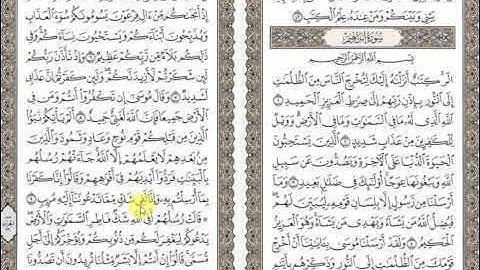 بَيْنِى وَبَيْنَكُمْ وَمَنْ عِندَهُۥ عِلْمُ ٱلْكِتَٰبِ ٤٣
سُورَةُ إِبْرَاهِيمَ
بِسْمِ ٱللَّهِ ٱلرَّحْمَٰنِ ٱلرَّحِيمِ
الٓر كِتَٰبٌ أَنزَلْنَٰهُ إِلَيْكَ لِتُخْرِجَ ٱلنَّاسَ مِنَ ٱلظُّلُمَٰتِ
إِلَى ٱلنُّورِ بِإِذْنِ رَبِّهِمْ إِلَىٰ صِرَٰطِ ٱلْعَزِيزِ ٱلْحَمِيدِ ١
ٱللَّهِ ٱلَّذِى لَهُۥ مَا فِى ٱلسَّمَٰوَٰتِ وَمَا فِى ٱلْأَرْضِ وَوَيْلٌ
لِّلْكَٰفِرِينَ مِنْ عَذَابٍ شَدِيدٍ ٢ ٱلَّذِينَ يَسْتَحِبُّونَ
ٱلْحَيَوٰةَ ٱلدُّنْيَا عَلَى ٱلْءَاخِرَةِ وَيَصُدُّونَ عَن سَبِيلِ
ٱللَّهِ وَيَبْغُونَهَا عِوَجًا أُو۟لَٰٓئِكَ فِى ضَلَٰلٍ بَعِيدٍ ٣
وَمَآ أَرْسَلْنَا مِن رَّسُولٍ إِلَّا بِلِسَانِ قَوْمِهِۦ لِيُبَيِّنَ لَهُمْ
فَيُضِلُّ ٱللَّهُ مَن يَشَآءُ وَيَهْدِى مَن يَشَآءُ وَهُوَ ٱلْعَزِيزُ
ٱلْحَكِيمُ ٤ وَلَقَدْ أَرْسَلْنَا مُوسَىٰ بِـَٔايَٰتِنَآ أَنْ أَخْرِجْ
قَوْمَكَ مِنَ ٱلظُّلُمَٰتِ إِلَى ٱلنُّورِ وَذَكِّرْهُم بِأَيَّىٰمِ
إِذْ أَنجَىٰكُم مِّنْ ءَالِ فِرْعَوْنَ يَسُومُونَكُمْ سُوٓءَ ٱلْعَذَابِ
وَيُذَبِّحُونَ أَبْنَآءَكُمْ وَيَسْتَحْيُونَ نِسَآءَكُمْ وَفِى
ذَٰلِكُم بَلَآءٌ مِّن رَّبِّكُمْ عَظِيمٌ ٦ وَإِذْ تَأَذَّنَ رَبُّكُمْ
لَئِن شَكَرْتُمْ لَأَزِيدَنَّكُمْ وَلَئِن كَفَرْتُمْ إِنَّ عَذَابِى
لَشَدِيدٌ ٧ وَقَالَ مُوسَىٰٓ إِن تَكْفُرُوٓا۟ أَنتُمْ وَمَن فِى
ٱلْأَرْضِ جَمِيعًا فَإِنَّ ٱللَّهَ لَغَنِىٌّ حَمِيدٌ ٨ أَلَمْ يَأْتِكُمْ نَبَؤُا۟
ٱلَّذِينَ مِن قَبْلِكُمْ قَوْمِ نُوحٍ وَعَادٍ وَثَمُودَ وَٱلَّذِينَ
مِنۢ بَعْدِهِمْ لَا يَعْلَمُهُمْ إِلَّا ٱللَّهُ جَآءَتْهُمْ رُسُلُهُم
بِٱلْبَيِّنَٰتِ فَرَدُّوٓا۟ أَيْدِيَهُمْ فِىٓ أَفْوَٰهِهِمْ وَقَالُوٓا۟ إِنَّا كَفَرْنَا
بِمَآ أُرْسِلْتُم بِهِۦ وَإِنَّا لَفِى شَكٍّ مِّمَّا تَدْعُونَنَآ إِلَيْهِ مُرِيبٍ ٩
۞ قَالَتْ رُسُلُهُمْ أَفِى ٱللَّهِ شَكٌّ فَاطِرِ ٱلسَّمَٰوَٰتِ وَٱلْأَرْضِ
يَدْعُوكُمْ لِيَغْفِرَ لَكُم مِّن ذُنُوبِكُمْ وَيُؤَخِّرَكُمْ إِلَىٰٓ أَجَلٍ
مُّسَمًّى قَالُوٓا۟ إِنْ أَنتُمْ إِلَّا بَشَرٌ مِّثْلُنَا تُرِيدُونَ أَن تَصُدُّونَا